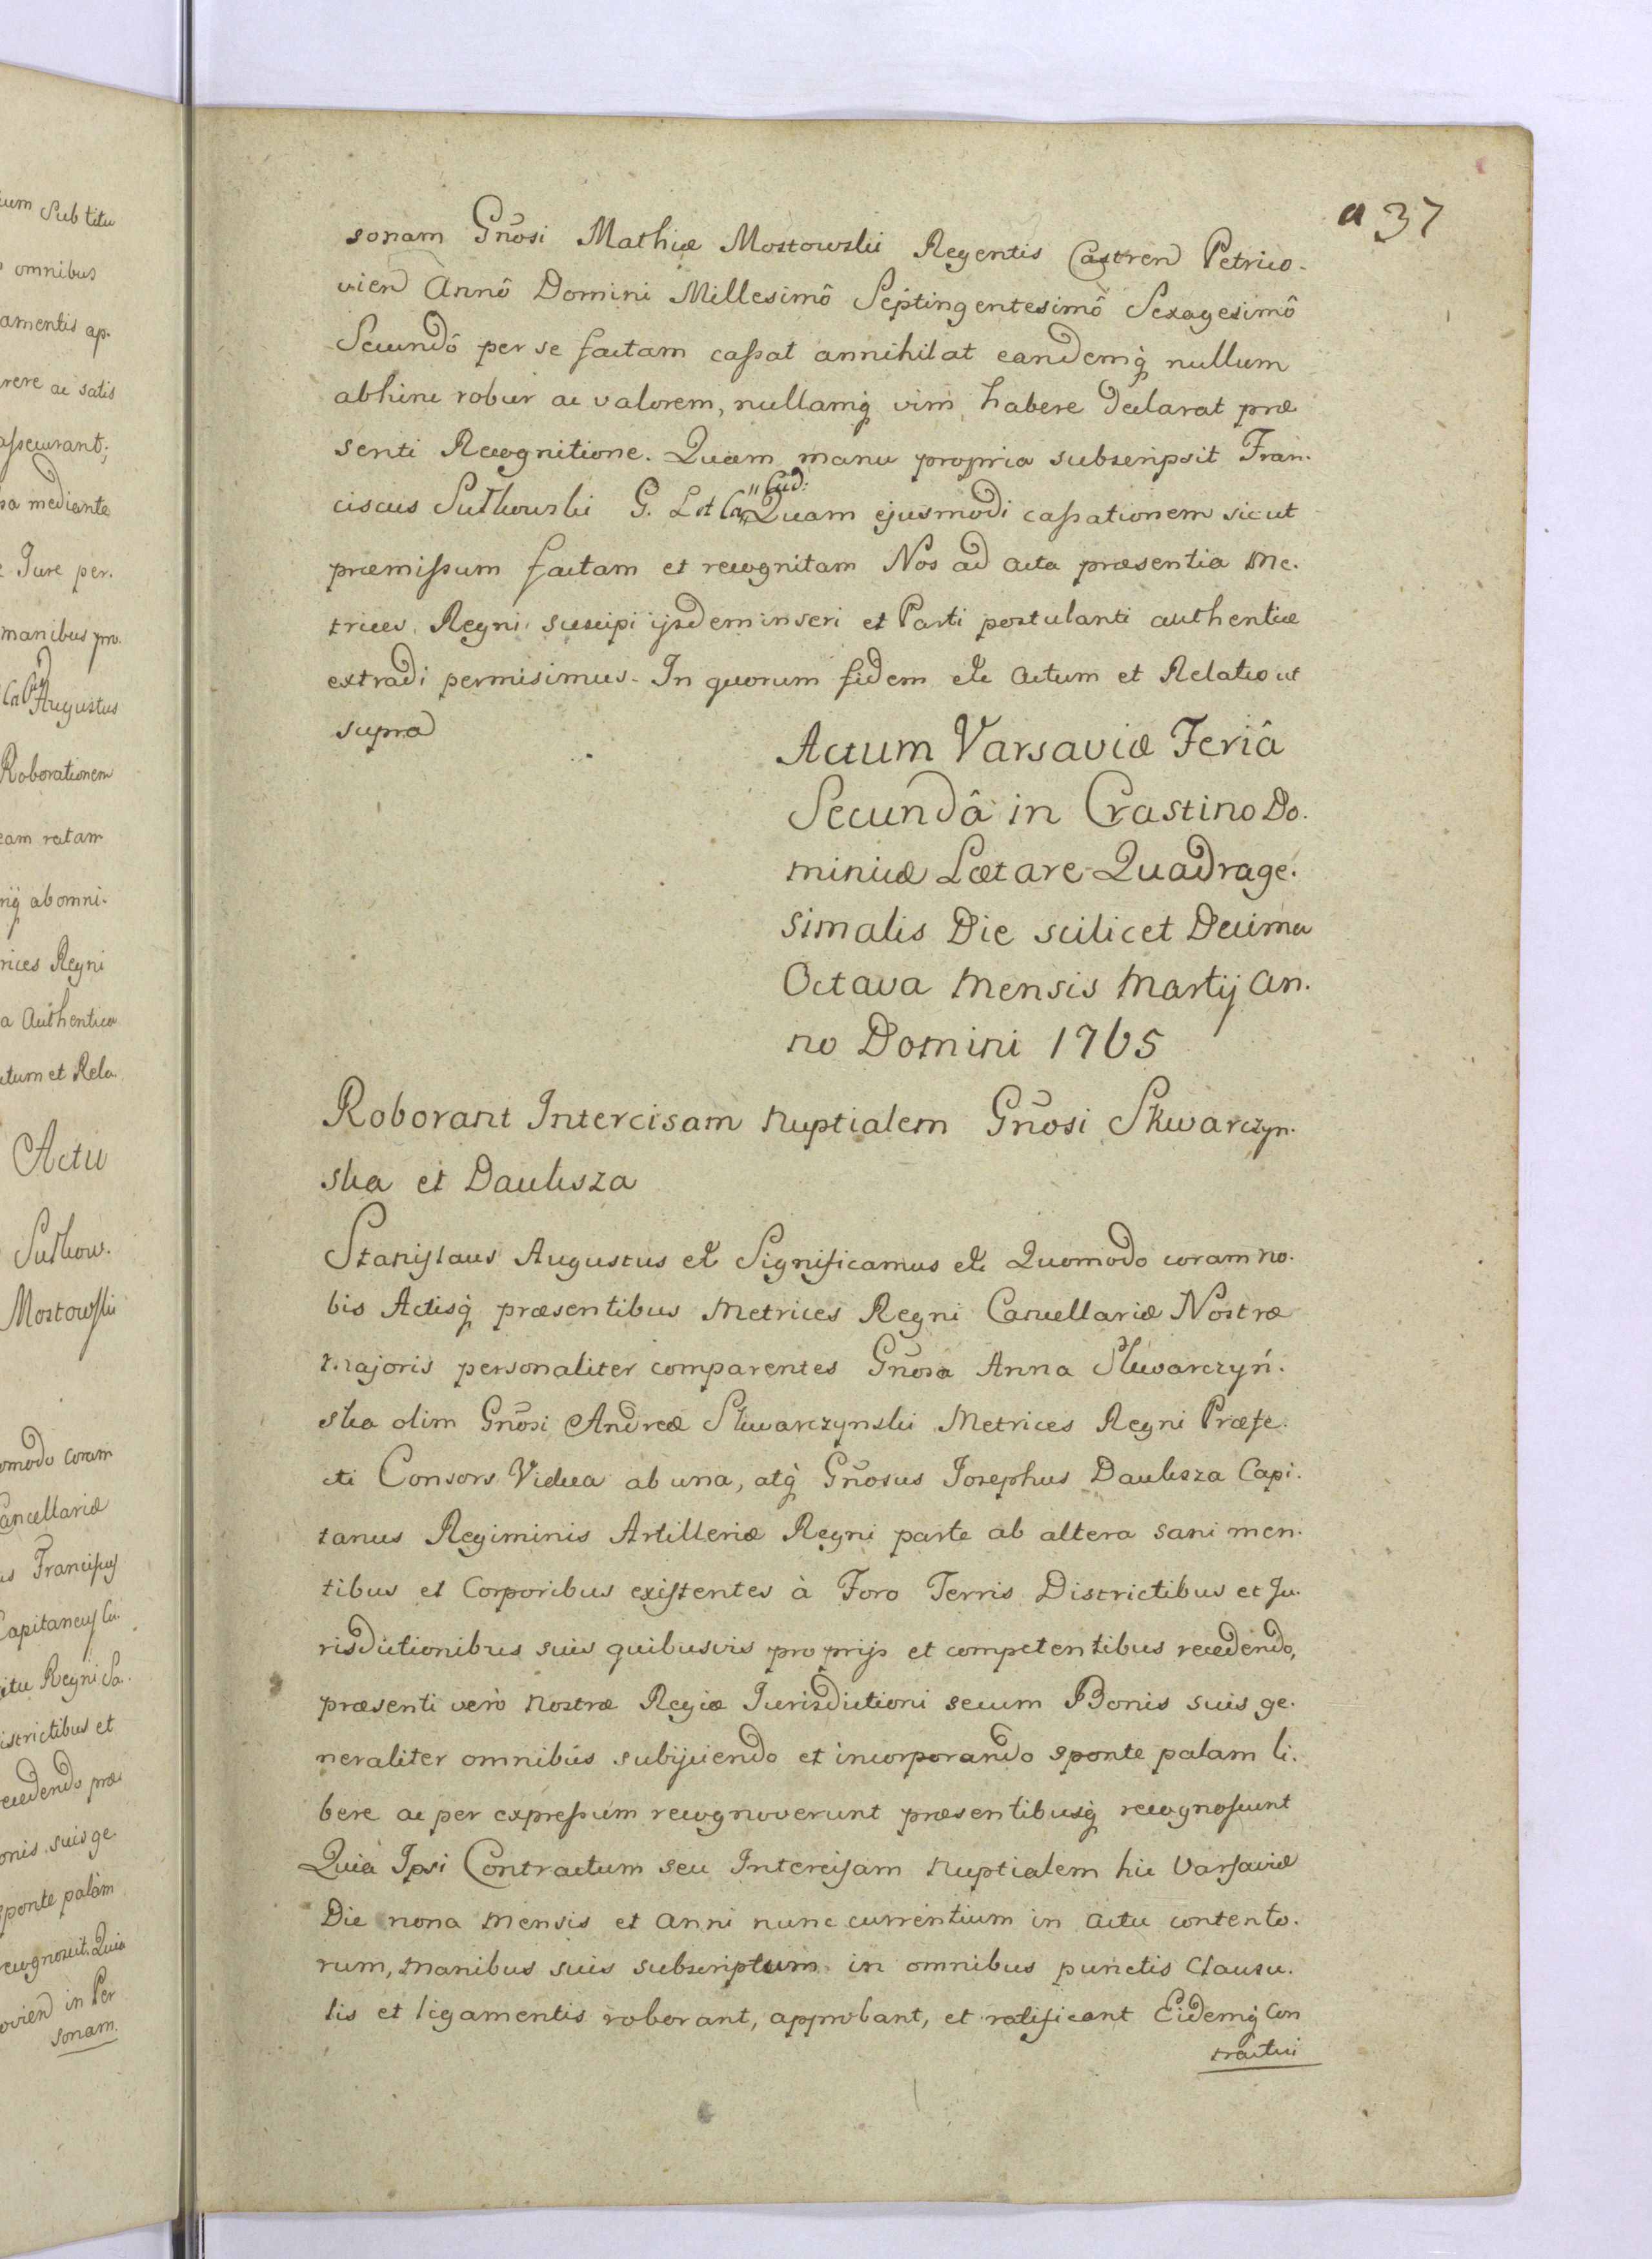 a 37
sonam Gnosi Mathiæ Mostowski Regentis Castren Petrico-
vien Annô Domini Millesimô Septingentesimô Sexagesimô
Secundô per se factam cassat annihilat eandemq nullum
abhinc robur ac valorem, nullamq vim habere declarat præ
senti Recognitione. Quam manu propria subscripsit Fran-
ciscus Sutkowski G. Quam ejusmodi cassationem sicut
præmissum factam et recognitam Nos ad acta præsentia Me-
trices Regni suscipi ijsdem inseri et Parti postulanti authentice
extradi permisimus. In quorum fidem etc Actum et Relatio ut
supra
Actum Varsaviæ Feriâ
Secundâ in Crastino Do-
minicæ Lætare Quadrage-
simalis Die scilicet Decima
Octava Mensis Martij An-
no Domini 1765
Roborant Intercisam Nuptialem Gnosi Skwarczyn-
ska et Dauksza
Stanislaus Augustus etc Significamus etc Quomodo coram no-
bis Actisq præsentibus Metrices Regni Cancellariæ Nostræ
Majoris personaliter comparentes Gnosa Anna Skwarczyń-
ska olim Gnosi Andreæ Skwarczynski Metrices Regni Præfe-
cti Consors Vidua ab una, atq Gnosus Josephus Dauksza Capi-
taneus Regiminis Artilleriæ Regni parte ab altera sani men-
tibus et Corporibus existentes à Foro Terris Districtibus et Ju-
risdictionibus suis quibusvis proprijs et competentibus recedendo,
præsenti verò Nostræ Regiæ Jurisdictioni secum Bonis suis ge-
neraliter omnibus subijciendo et incorporando sponte palam li-
bere ac per expressum recognoverunt præsentibusq recognoscunt
Quia Ipsi Contractum seu Intercisam Nuptialem hic Varsaviæ
Die nona Mensis et Anni nunc currentium in Actu contento-
rum, manibus suis subscriptum in omnibus punctis Clausu-
lis et ligamentis roborant, approbant, et ratificant Eidemq Con
tractui